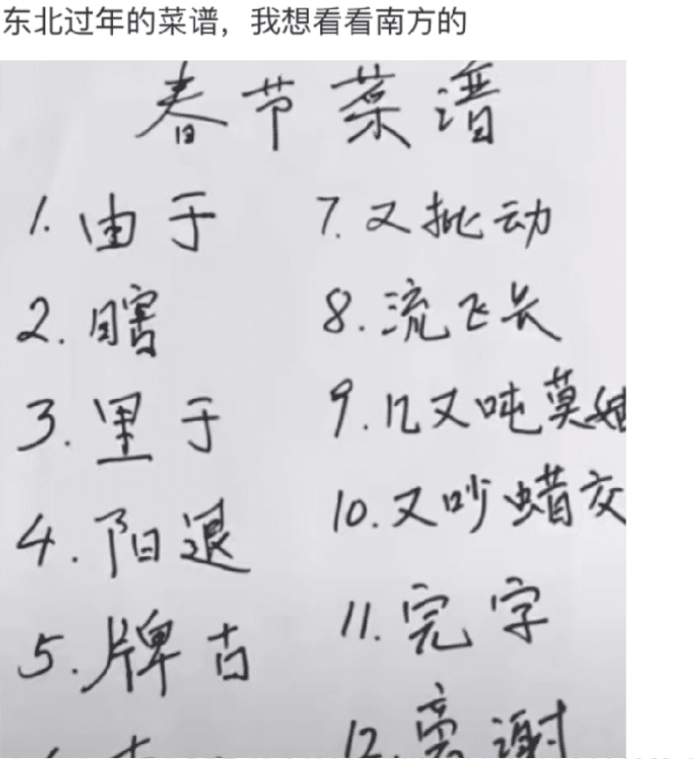 东北过年的菜谱，我想看看南方的
春节菜谱
1. 由于
2. 瞎
3. 里于
4. 阳退
5. 牌古
7. 又批动
8. 流飞长
9. 几又吨莫
10. 又吵蜡交
11. 完字
12. 谢